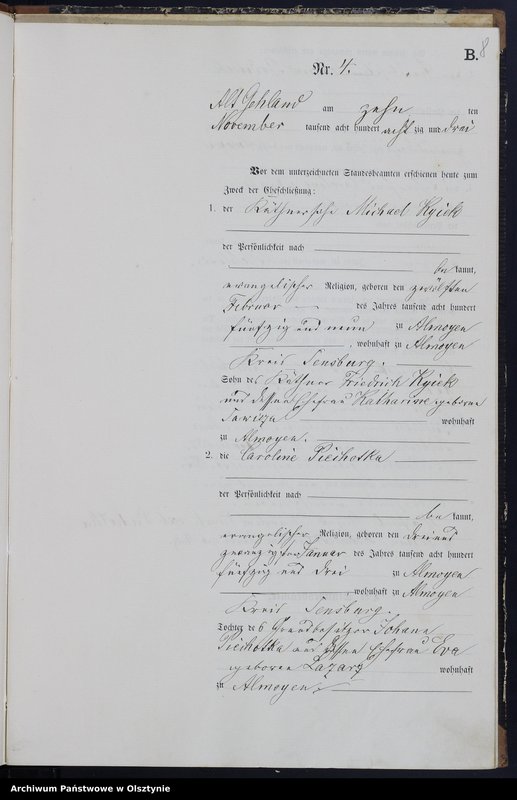 B. 8
Nr. 4.
Alt Gehland am zehn ten
November tausend acht hundert acht zig und drei
Vor dem unterzeichneten Standesbeamten erschienen heute zum
Zweck der Eheschließung:
1. der Käthnersohn Michael Kyiek
der Persönlichkeit nach
be kannt,
evangelischer Religion, geboren den zwölften
Februar des Jahres tausend acht hundert
fünfzig und neun zu Almoyen
, wohnhaft zu Almoyen
Kreis Sensburg.
Sohn des Käthner Friedrich Kyiek
und dessen Ehefrau Katharine geborene
wohnhaft
zu Almoyen.
2. die Caroline Piechotka
der Persönlichkeit nach
be kannt,
evangelischer Religion, geboren den drei und
zwanzigsten Januar des Jahres tausend acht hundert
fünfzig und drei zu Almoyen
, wohnhaft zu Almoyen
Kreis Sensburg.
Tochter des Grundbesitzer Johann
Piechotka und dessen Ehefrau Eva
geboren Lazarz wohnhaft
zu Almoyen.
Archiwum Państwowe w Olsztynie